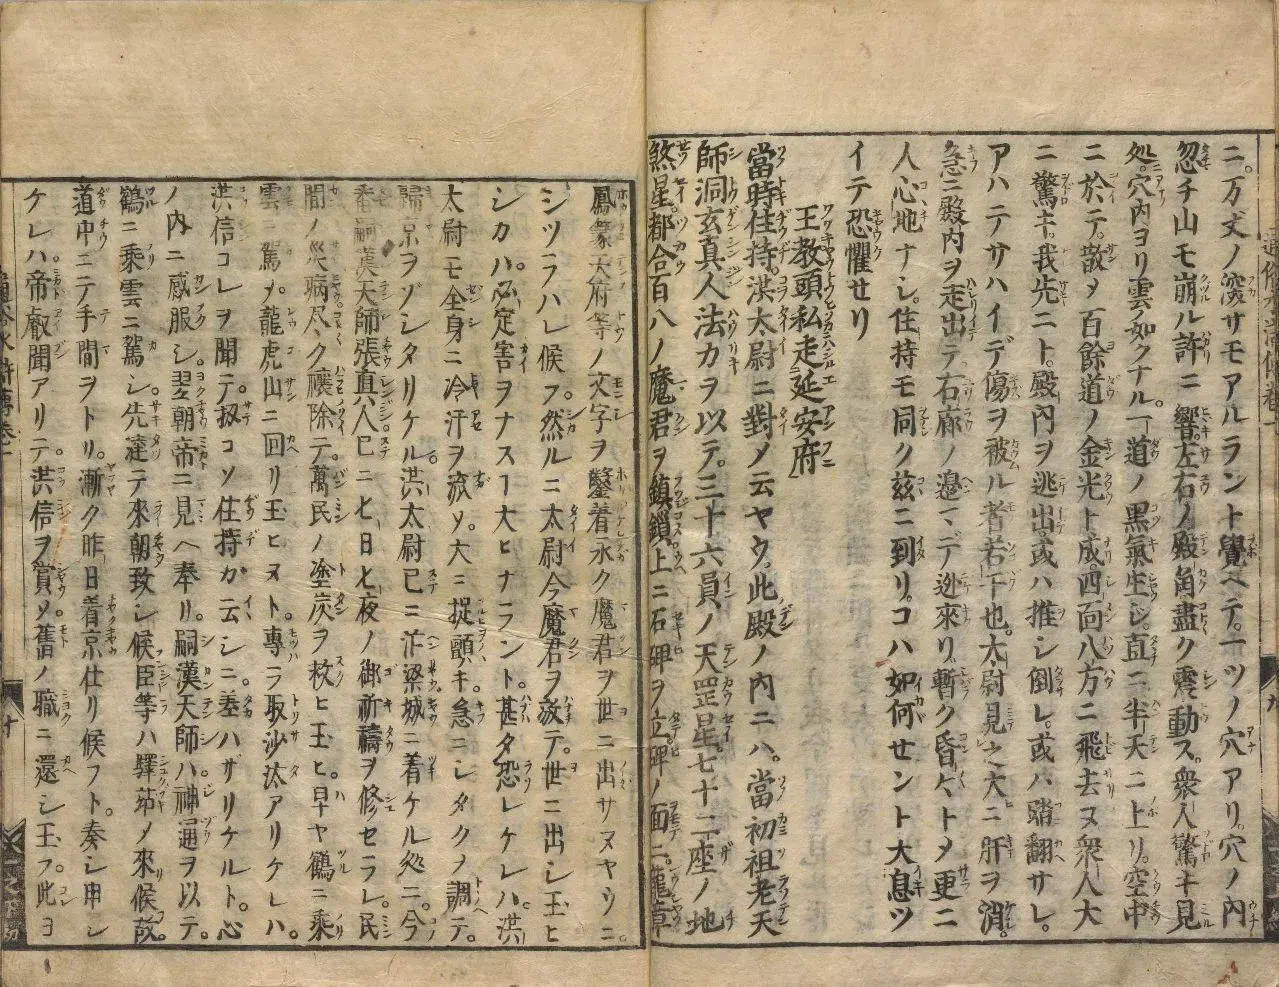 ニ。万丈ノ深サモアルラント覺ヘテ。一ツノ穴アリ。穴ノ內
忽チ山モ崩ル許ニ響。左右ノ殿角盡ク震動ス。衆人驚キ見
処ニ。穴內ヨリ雲ノ如クナル。一道ノ黒氣生ジ。直ニ半天ニ上リ。空中
ニ於テ。散メ百餘道ノ金光ト成。四面八方ニ飛去ヌ衆人大
ニ驚キ。我先ニト。殿內ヲ逃出。或ハ推シ倒レ。或ハ翻サレ。
アハテサハイデ傷ヲ被ル者若干也。太尉見之大ニ肝ヲ消。
急ニ殿內ヲ走出テ右廊ノ邉マデ迯來リ。暫ク昏々トメ更ニ
人心地ナシ。住持モ同ク茲ニ到リ。コハ如何セント大息ツ
イテ恐懼セリ
王教頭私走延安府
當時住持。洪太尉ニ對メ云ヤウ。此殿ノ內ニハ。當初祖老天
師洞玄真人法力ヲ以テ。三十六員ノ天罡星。七十二座ノ地
煞星。都合百八ノ魔君ヲ鎮鎖上ニ石碑ヲ立碑ノ面ニ。龍章
鳳篆天府等ノ文字ヲ鑿着永ク魔君ヲ世ニ出サヌヤウニ。
シツラハレ候フ。然ルニ太尉今魔君ヲ放テ。世ニ出シ玉ヒ
シカハ。必定害ヲナスヿ大ヒナラント。甚タ恐レケレハ。洪
太尉モ全身ニ冷汗ヲ流ソ。大ニ捉顫キ。急ニシタクノ調テ。
歸京ヲゾシタリケル洪太尉已ニ汴梁城ニ着ケル処ニ。今
番嗣漢天師張真人已ニ七日七夜ノ御祈禱ヲ修セラレ。民
間ノ災病尽ク禳除テ。萬民ノ塗炭ヲ救ヒ玉ヒ。早ヤ鶴ニ乘
雲ニ駕ソ。龍虎山ニ回リ玉ヒヌト。專ラ取沙汰アリケレハ。
洪信コレヲ聞テ扨コソ住持カ云シニ差ハザリケルト。心
ノ內ニ感服シ。翌朝帝ニ見ヘ奉リ。嗣漢天師ハ神通ヲ以テ。
鶴ニ乘雲ニ駕シ。先達テ來朝致シ候臣等ハ驛莭ノ來候故。
道中ニテ手間ヲトリ。漸ク昨日着京仕リ候フト。奏シ申シ
ケレハ。帝叡聞アリテ。洪信ヲ賞ソ舊ノ職ニ還シ玉フ。此ヨ